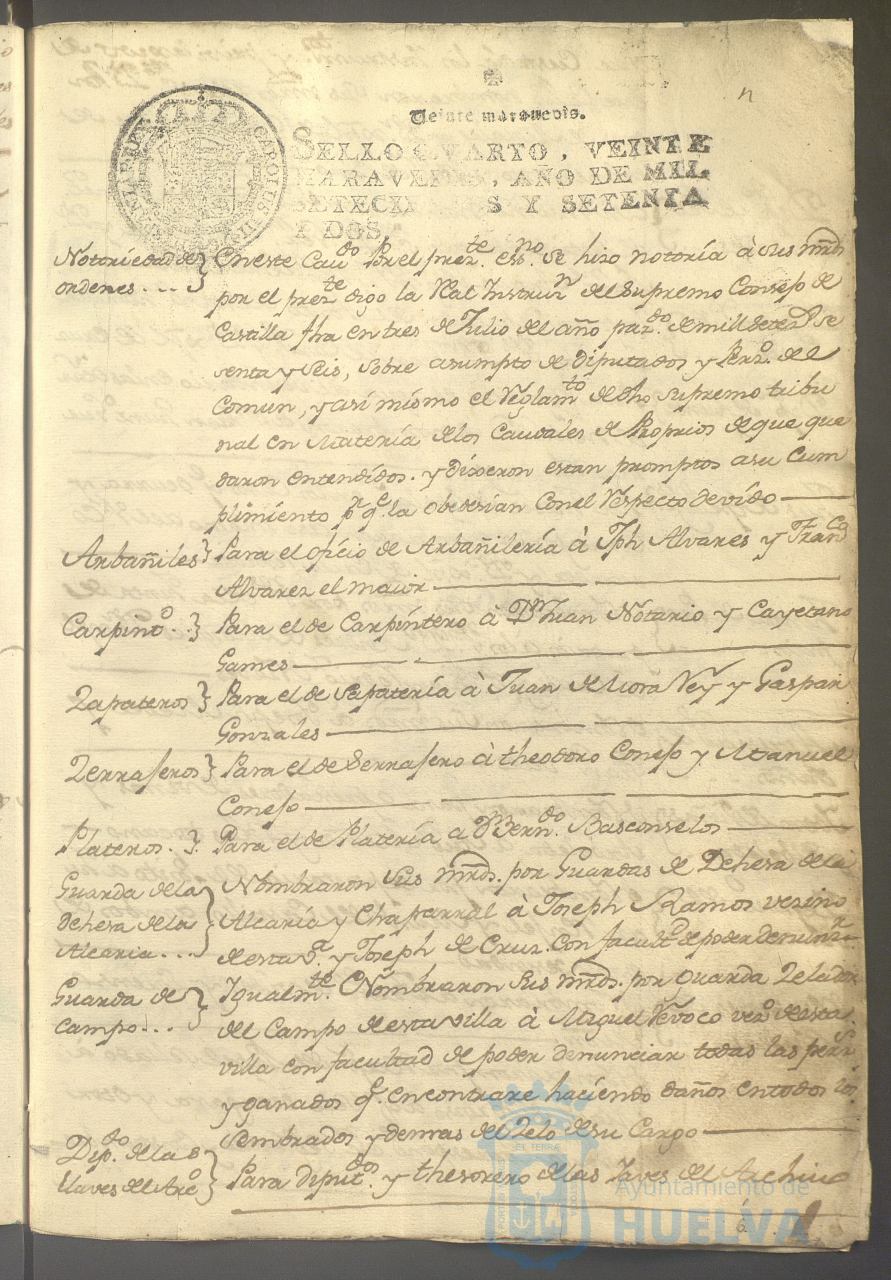 Veinte maravedis.
SELLO QVARTO, VEINTE
MARAVEDIS, AÑO DE MIL
SETECIENTOS Y SETENTA
Y DOS.
CAROLUS III
Notoriedad de } En este Cau.do Por el prez.te esno. se hizo notoria à sus mrds
ordenes... } por el prez.te digo la Real Instruz.n del Supremo Consejo de
Castilla fha en tres de Julio del año paz.do de mill setez.s se
senta y seis, sobre asumpto de Diputados y Perz.o del
Comun, y asi mismo el Reglam.to de dho supremo tribu
nal en Materia de los Caudales de Proprios de que que
daron entendidos. y dixeron estan promptos a su Cum
plimiento p.r q.e la obedezian Con el Respecto devido
Arbañiles } Para el oficio de Arbañilería à Jph Alvares y Fran.co
Alvarez el maior
Carpint.o } Para el de Carpintero à D.n Juan Notario y Cayetano
Games
Zapateros } Para el de Sapatería à Juan de Mora Rey y Gaspar
Gonzales
Zerrajeros } Para el de Serrajero à theodoro Conejo y Manuel
Conejo
Plateros. } Para el de Platería a D.n Bern.do Basconselos
Guarda de la } Nombraron Sus mrds. por Guardas de Dehesa de la
dehesa de la } Alcaría y Chaparral à Joseph Ramos vezino
Alcaria... } de esta v.a y Joseph de Cruz. Con facult.d de poder denunz.r
Guarda de } Igualm.te Nombraron Sus mrds. por Guarda Zelador
Campo... } del Campo de esta villa à Miguel vez.o de esta
villa con facultad de poder denunciar todas las perz.s
y ganados q.e encontrare haciendo daños en todos los
Sembrados y demas del Zelo de su Cargo
Dip.do de las } Para diput.do y thesorero de las Llaves del Archivo
llaves del Arc.o }
Ayuntamiento de
HUELVA